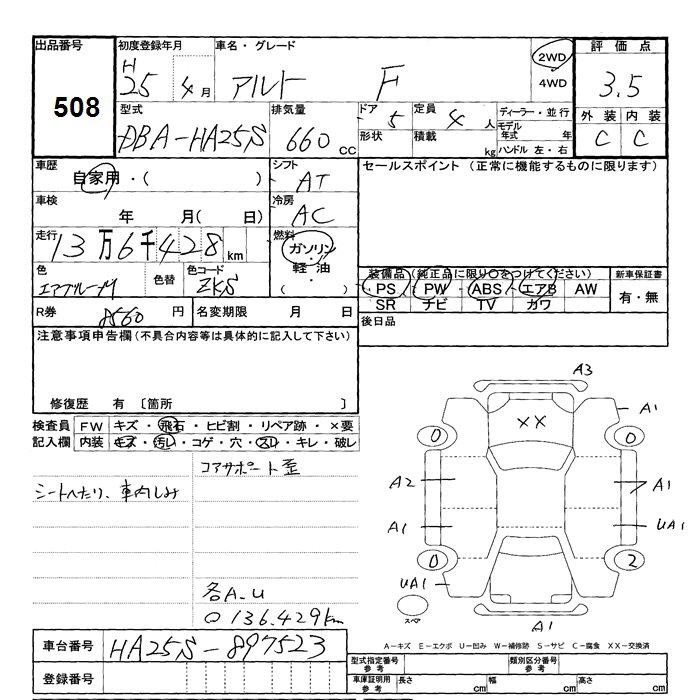 出品番号 初度登録年月 車名・グレード 2WD 評価点
H
508 25 4月 アルト F 4WD 3.5
型式 排気量 ドア 定員 ディーラー・並行 外装 内装
DBA-HA25S 660cc 5 4人 モデル年式 年 C C
形状 積載 kg ハンドル 左・右
車歴 自家用・( ) シフト AT セールスポイント (正常に機能するものに限ります)
車検 年 月( 日) 冷房 AC
走行 13万6千428km 燃料 ガソリン・軽油・
色 エアブルーM 色替 色コード ZKS
装備品(純正品に限り○をつけてください) 新車保証書
PS PW ABS エアB AW 有・無
SR ナビ TV カワ
R券 8560円 名変期限 月 日 後日品
注意事項申告欄(不具合内容等は具体的に記入して下さい)
修復歴 有 〔箇所 〕
検査員 FW キズ・飛石・ヒビ割・リペア跡・×要
記入欄 内装 キズ・汚れ・コゲ・穴・スレ・キレ・破レ
コアサポート歪
シートへたり、車内しみ
各A.U
136.429km
A3
A1
XX
0 0
A2 A1
A1 UA1
0 2
UA1
スペア
A1
車台番号 HA25S-897523
登録番号
A-キズ E-エクボ U-凹み W-補修跡 S-サビ C-腐食 XX-交換済
型式指定番号 参考 類別区分番号 参考
車庫証明用 参考 長さ cm 幅 cm 高さ cm